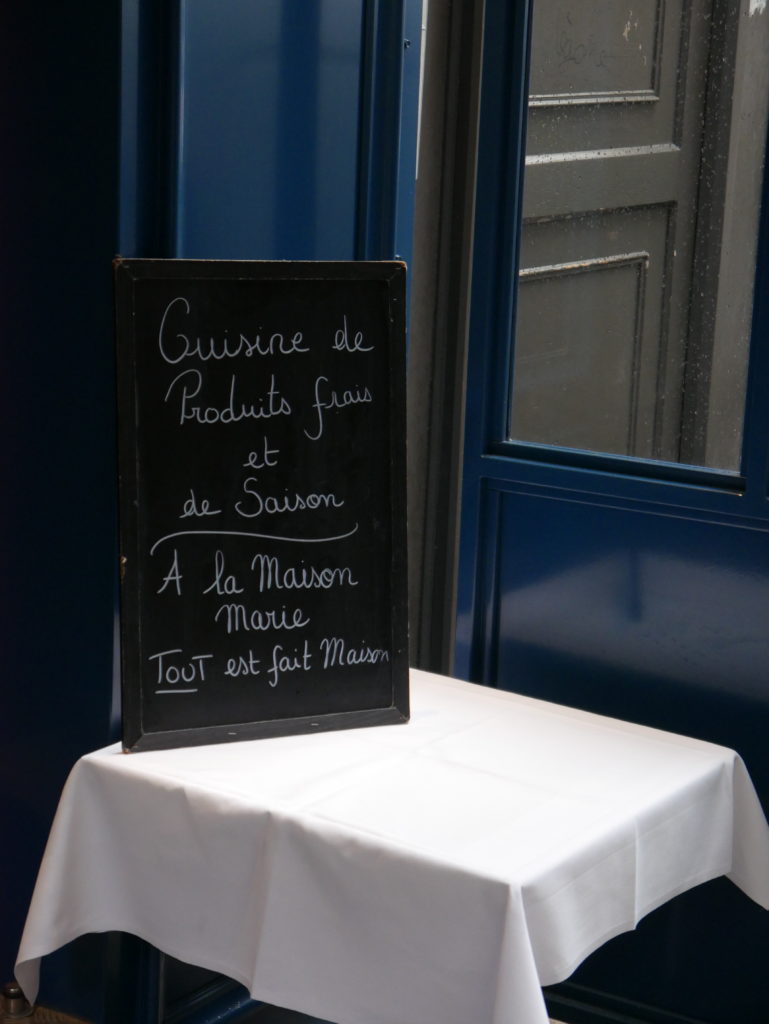 Cuisine de
Produits frais
et
de Saison
A la Maison
Marie
TOUT est fait Maison